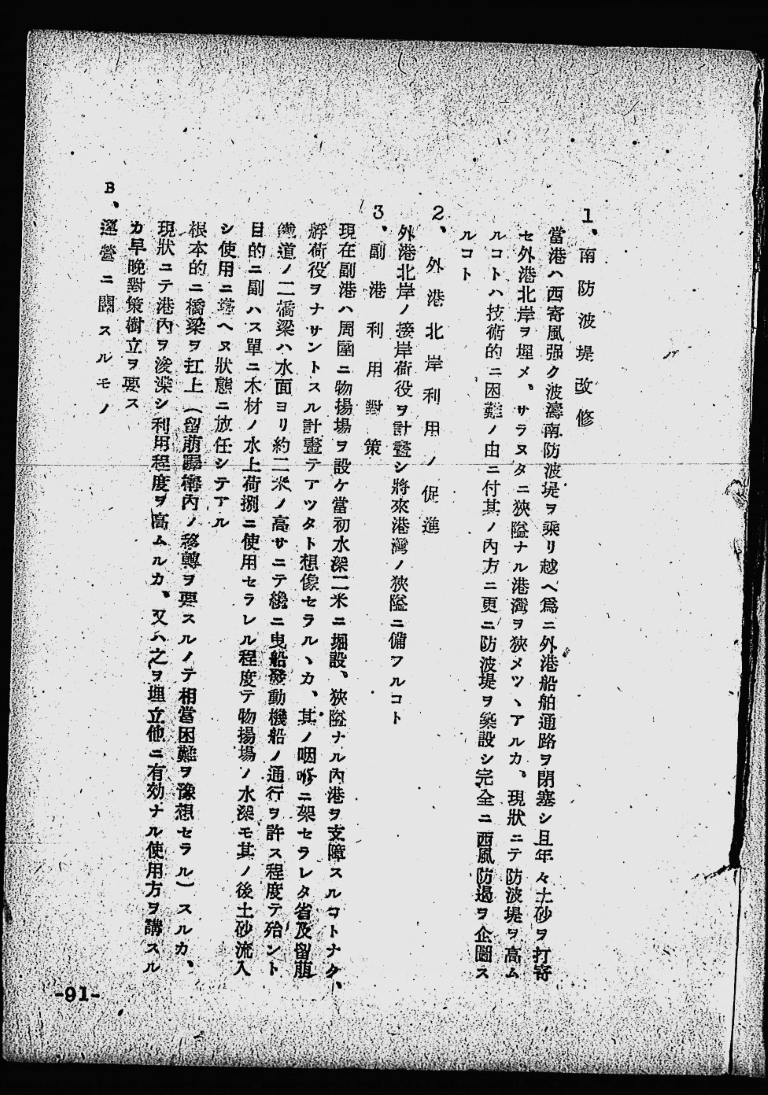 1、南防波堤改修
當港ハ西寄風强ク波濤南防波堤ヲ乘リ越ヘ爲ニ外港船舶通路ヲ閉塞シ且年々土砂ヲ打寄
セ外港北岸ヲ埋メ、サラヌタニ狹隘ナル港灣ヲ狹メツヽアルカ、現狀ニテ防波堤ヲ高ム
ルコトハ技術的ニ困難ノ由ニ付其ノ內方ニ更ニ防波堤ヲ築設シ完全ニ西風防遏ヲ企圖ス
ルコト
2、外港北岸利用ノ促進
外港北岸ノ接岸荷役ヲ計畫シ將來港灣ノ狹隘ニ備フルコト
3、副港利用對策
現在副港ハ周圍ニ物揚場ヲ設ケ當初水深二米ニ掘設、狹隘ナル內港ヲ支障スルコトナク、
艀荷役ヲナサントスル計畫テアツタト想像セラルヽカ、其ノ咽喉ニ架セラレタ省及留萠
鐵道ノ二橋梁ハ水面ヨリ約二米ノ高サニテ纔ニ曳船發動機船ノ通行ヲ許ス程度テ殆ント
目的ニ副ハス單ニ木材ノ水上荷捌ニ使用セラレル程度テ物揚場ノ水深モ其ノ後土砂流入
シ使用ニ堪ヘヌ狀態ニ放任シテアル
根本的ニ橋梁ヲ扛上(留萠驛構內ノ移轉ヲ要スルノテ相當困難ヲ豫想セラル)スルカ、
現狀ニテ港內ヲ浚渫シ利用程度ヲ高ムルカ、又ハ之ヲ埋立他ニ有効ナル使用方ヲ講スル
カ早晚對策樹立ヲ要ス
B、運營ニ關スルモノ
-91-